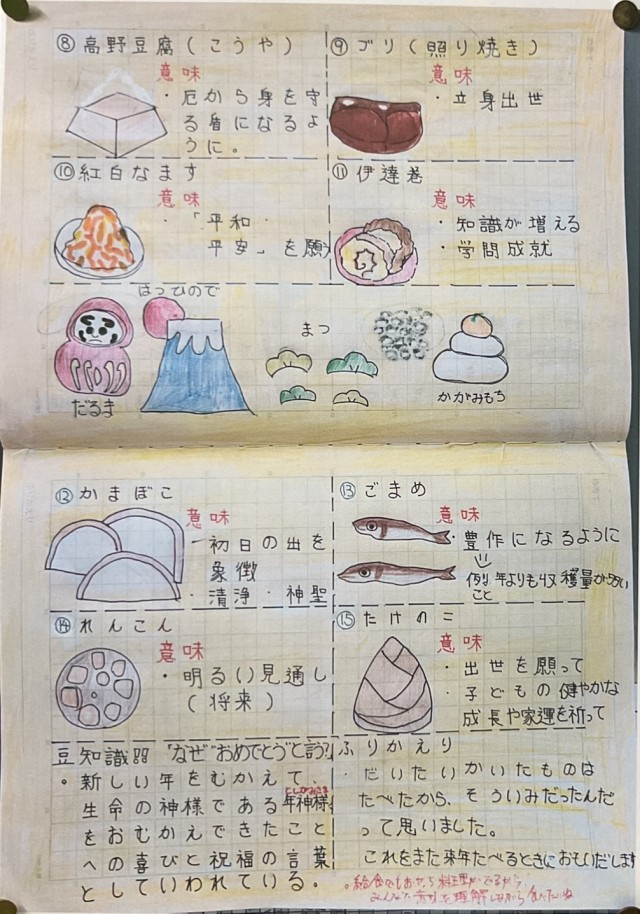 ⑧高野豆腐(こうや)
意味
・厄から身を守
る盾になるよ
うに。
⑨ブリ(照り焼き)
意味
・立身出世
⑩紅白なます
意味
・「平和・
平安」を願う
⑪伊達巻
意味
・知識が増える
・学問成就
はつひので
だるま
まつ
かがみもち
⑫かまぼこ
意味
・初日の出を
象徴
・清浄・神聖
⑬ごまめ
意味
・豊作になるように
例年よりも収穫量が多い
こと
⑭れんこん
意味
・明るい見通し
(将来)
⑮たけのこ
意味
・出世を願って
・子どもの健やかな
成長や家運を祈って
豆知識 "なぜ"おめでとうと言う
。新しい年をむかえて、
生命の神様である年神様
としがみさま
をおむかえできたこと
への喜びと祝福の言葉
としていわれている。
ふりかえり
だいたいかいたものは
たべたから、そういみだったんだ
って思いました。
これをまた来年たべるときにおもいだします
。給食でもおせち料理がでるから